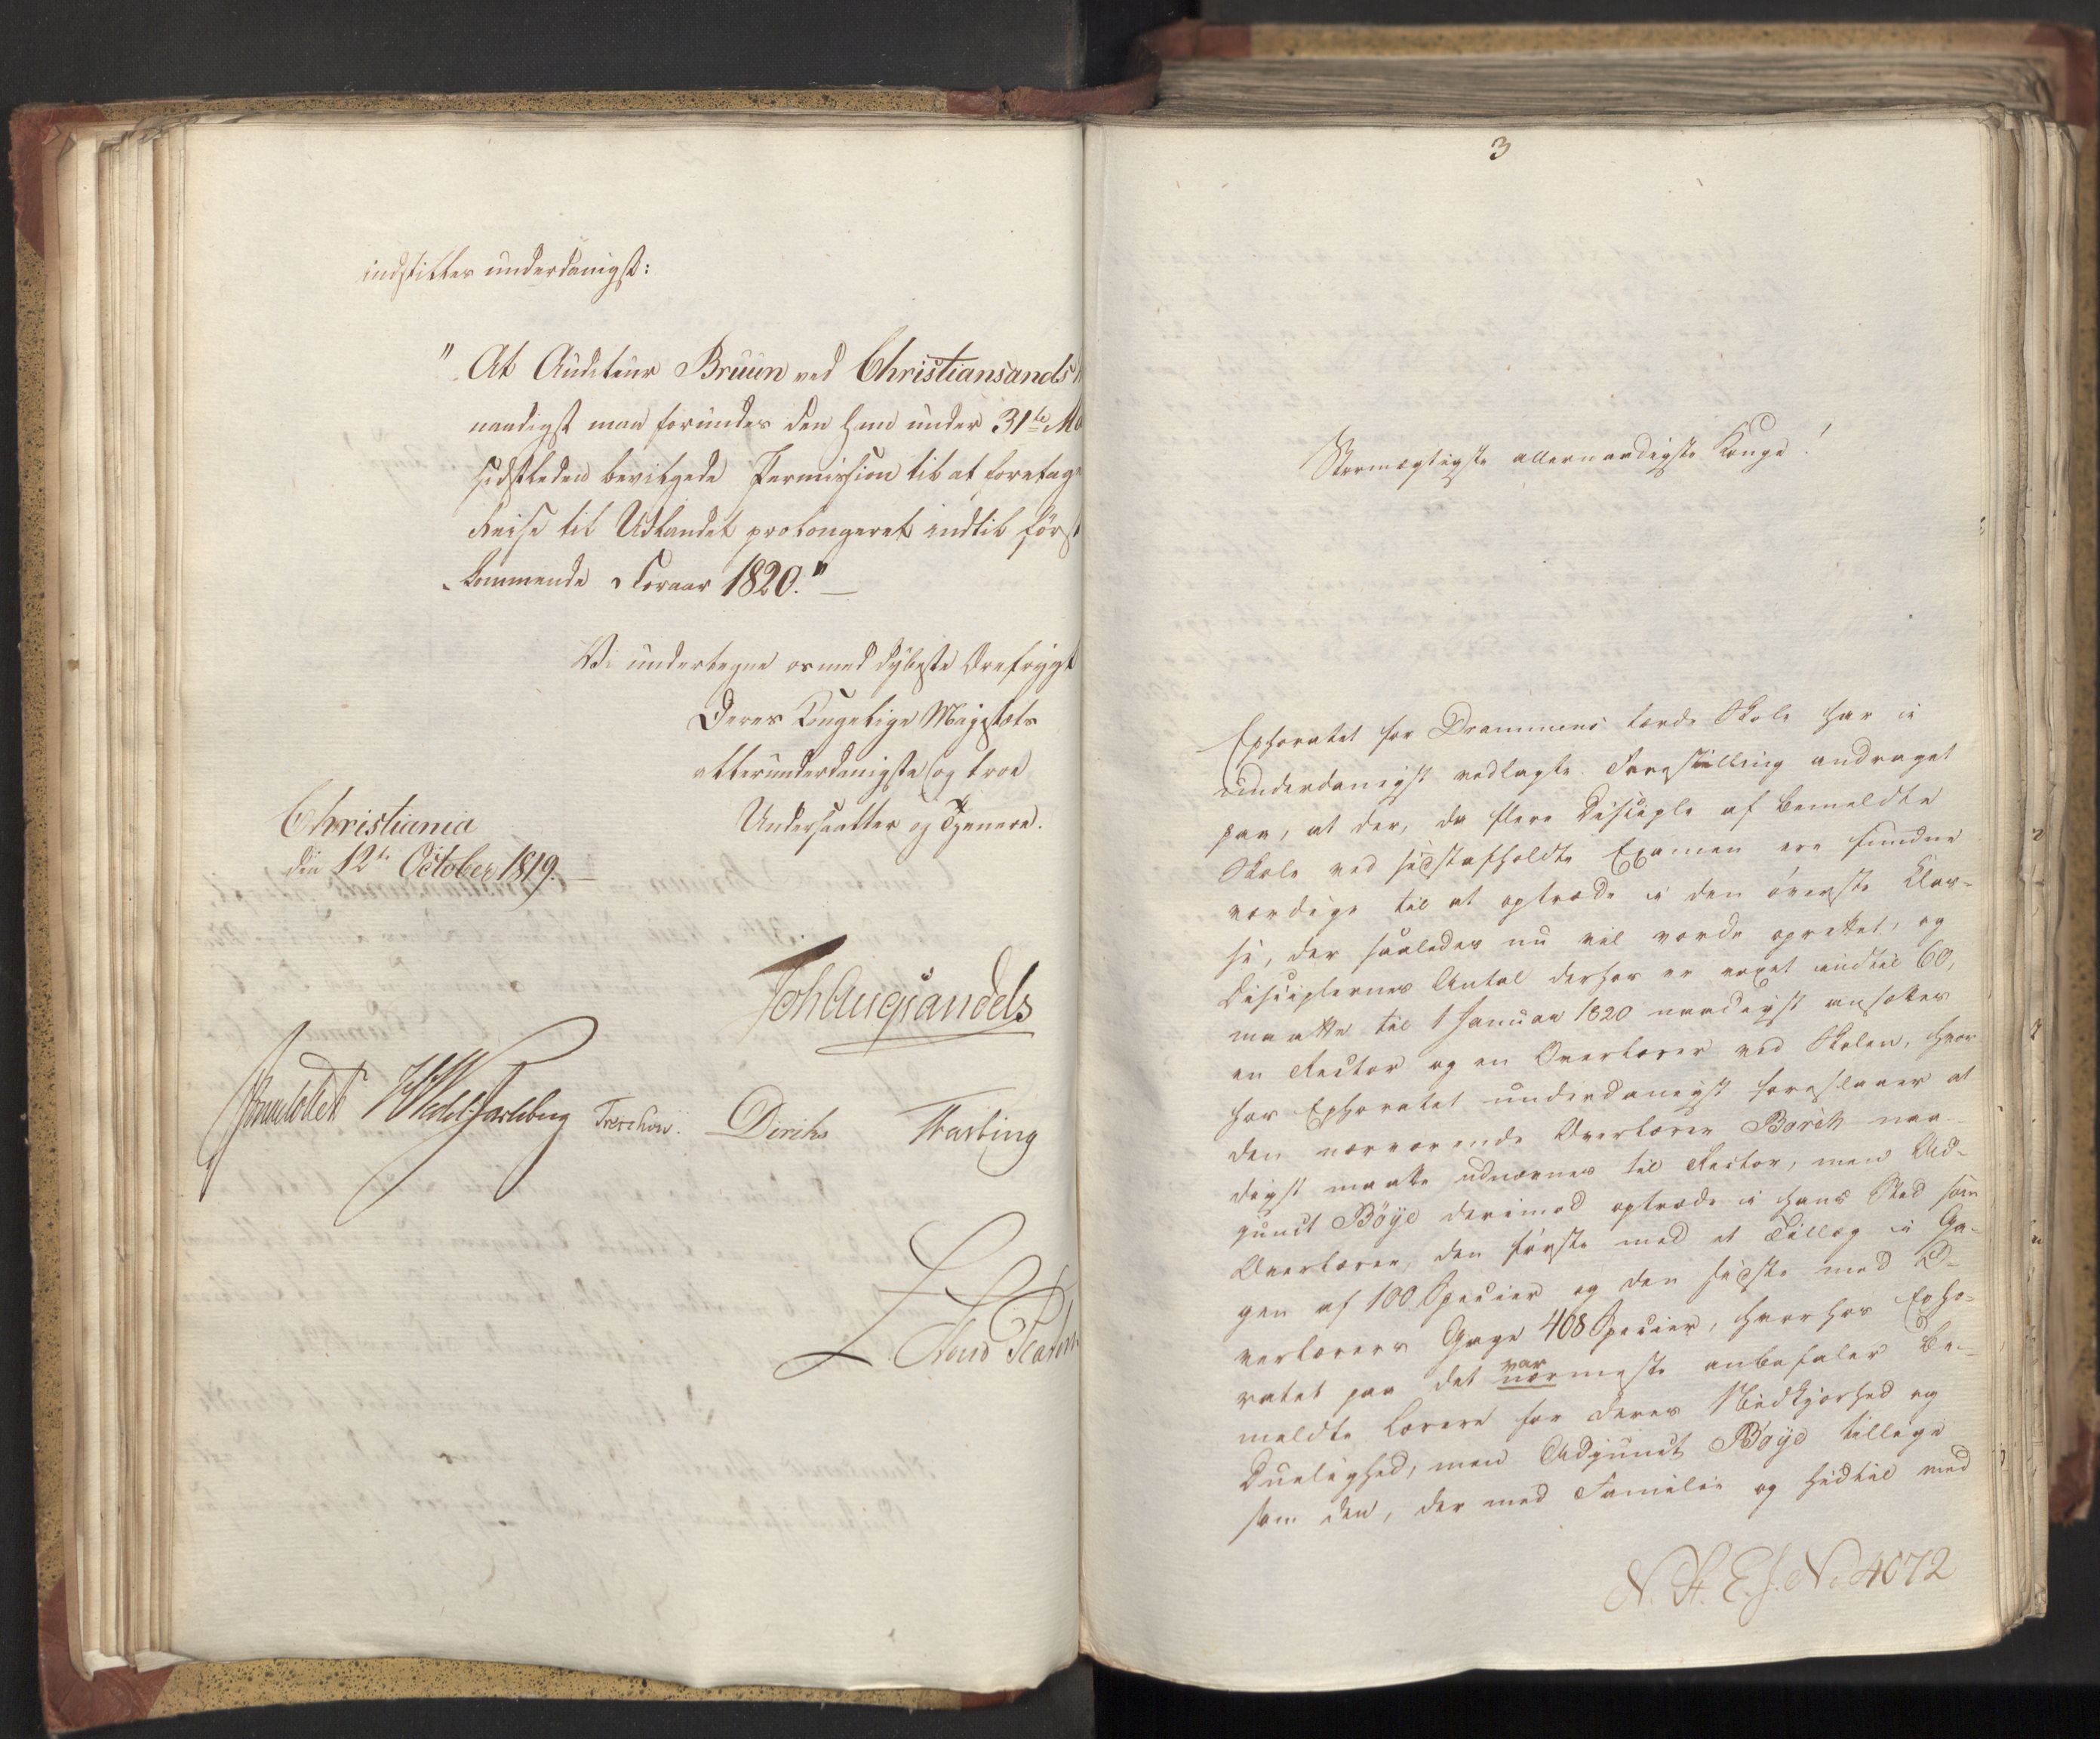 indstilles underdanigst:
" At Auditeur Bruun ved Christiansands
naadigst maa forundes den ham under 31te Ma
sidstleden bevilgede Permission til at foretage
Reise til Udlandet prolongeret indtil først
kommende Foraar 1820." —
Vi undertegne os med dybeste Ærefrygt
Deres Kongelige Majestæts
allerunderdanigste og troe
Undersaatter og Tjenere.
Christiania
den 12te October 1819. —
Joh Aug Sandels
Sommerhielm HWedel Jarlsberg Treschow. Diriks Fasting
L.
3
Stormægtigste allernaadigste Konge!
Ephoratet for Drammens lærde Skole har i
underdanigst vedlagte Forestilling andraget
paa, at der, da flere Disciple af bemeldte
Skole ved sidstafholdte Examen ere fundne
værdige til at optræde i den øverste Clas-
se, der saaledes nu vil vorde oprettet, og
Disciplernes Antal derhos er voxet indtil 60,
maatte til 1 Januar 1820 naadigst ansættes
en Rector og en Overlærer ved Skolen, hvor
hos Ephoratet underdanigst foreslaaer at
den nærværende Overlærer Borch naa-
digst maatte udnævnes til Rector, men Ad-
junct Böye derimod optræde i hans Sted som
Overlærer, den første med et Tillæg i Ga-
gen af 100 Specier og den sidste med O-
verlærers Gage 408 Specier, hvorhos Epho-
ratet paa det var
nærmeste anbefaler be-
meldte Lærere for deres Nidkjærhed og
Duelighed, men Adjunct Böye tillige
som den, der med Familie og hidtil med
N. A. E. J. No 4072